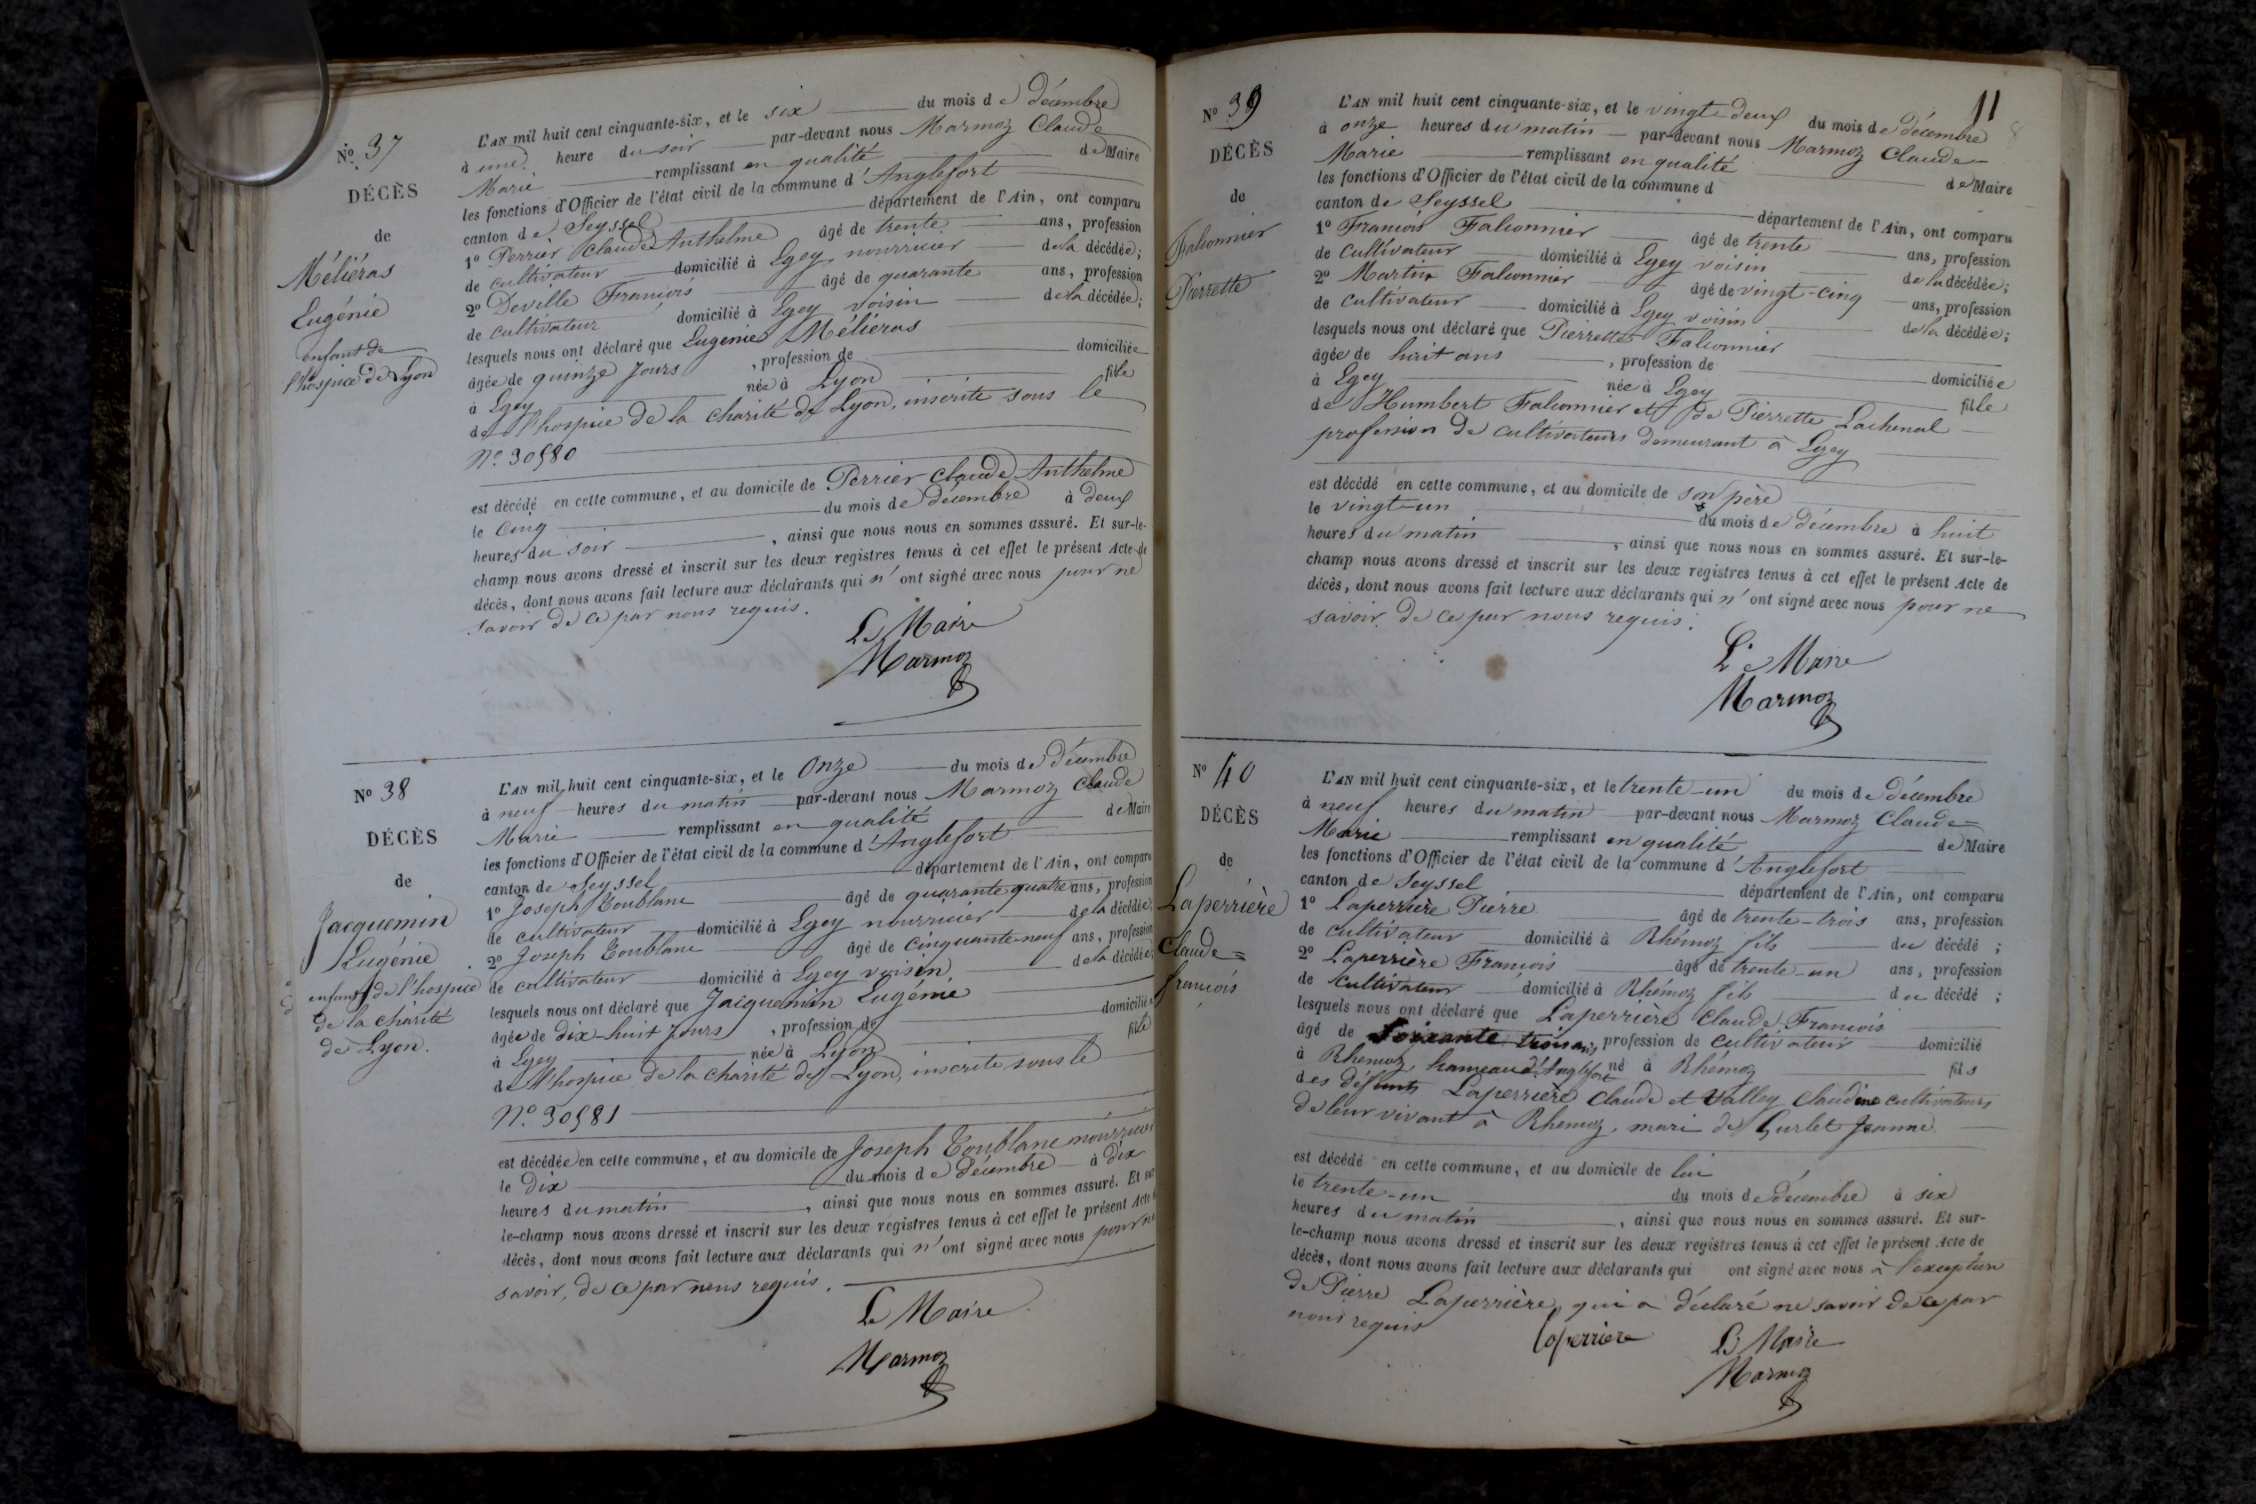 N° 37
DÉCÈS
de
Méliéras
Eugénie
enfant de
l'hospice de Lyon
L'AN mil huit cent cinquante-six, et le six du mois de décembre
à une heure du soir par-devant nous Marmoz Claude
Marie remplissant en qualité de Maire
les fonctions d'Officier de l'état civil de la commune d'Anglefort
canton de Seyssel département de l'Ain, ont comparu
1° Perrier Claude Anthelme âgé de trente ans, profession
de cultivateur domicilié à Egey nourricier de la décédée;
2° Deville François âgé de quarante ans, profession
de cultivateur domicilié à Egey voisin de la décédée;
lesquels nous ont déclaré que Eugénie Méliéras
âgée de quinze jours, profession de domiciliée
à Egey née à Lyon fille
de l'hospice de la charité de Lyon, inscrite sous le
N° 30580
est décédé en cette commune, et au domicile de Perrier Claude Anthelme
le cinq du mois de décembre à deux
heures du soir, ainsi que nous nous en sommes assuré. Et sur-le-
champ nous avons dressé et inscrit sur les deux registres tenus à cet effet le présent Acte de
décès, dont nous avons fait lecture aux déclarants qui n'ont signé avec nous pour ne
savoir de ce par nous requis.
Le Maire
Marmoz
N° 38
DÉCÈS
de
Jacquemin
Eugénie
enfant de l'hospice
de la charité
de Lyon.
L'AN mil huit cent cinquante-six, et le onze du mois de décembre
à neuf heures du matin par-devant nous Marmoz Claude
Marie remplissant en qualité de Maire
les fonctions d'Officier de l'état civil de la commune d'Anglefort
canton de Seyssel département de l'Ain, ont comparu
1° Joseph Toublanc âgé de quarante quatre ans, profession
de cultivateur domicilié à Egey nourricier de la décédée;
2° Joseph Toublanc âgé de cinquante-neuf ans, profession
de cultivateur domicilié à Egey voisin de la décédée;
lesquels nous ont déclaré que Jacquemin Eugénie
âgée de dix-huit jours, profession de domiciliée
à Egey née à Lyon fille
de l'hospice de la charité de Lyon, inscrite sous le
N° 30581
est décédée en cette commune, et au domicile de Joseph Toublanc nourricier
le dix du mois de décembre à dix
heures du matin, ainsi que nous nous en sommes assuré. Et sur
le-champ nous avons dressé et inscrit sur les deux registres tenus à cet effet le présent Acte
décès, dont nous avons fait lecture aux déclarants qui n'ont signé avec nous pour ne
savoir, de ce par nous requis.
Le Maire
Marmoz
11
N° 39
DÉCÈS
de
Falconnier
Pierrette
L'AN mil huit cent cinquante-six, et le vingt-deux du mois de décembre
à onze heures du matin par-devant nous Marmoz Claude
Marie remplissant en qualité de Maire
les fonctions d'Officier de l'état civil de la commune d
canton de Seyssel département de l'Ain, ont comparu
1° François Falconnier âgé de trente ans, profession
de cultivateur domicilié à Egey voisin de la décédée;
2° Martin Falconnier âgé de vingt-cinq ans, profession
de cultivateur domicilié à Egey voisin de la décédée;
lesquels nous ont déclaré que Pierrette Falconnier
âgée de huit ans, profession de domiciliée
à Egey née à Egey fille
de Humbert Falconnier et de Pierrette Lachenal
profession de cultivateurs demeurant à Egey
est décédé en cette commune, et au domicile de son père
le vingt-un du mois de décembre à huit
heures du matin, ainsi que nous nous en sommes assuré. Et sur-le-
champ nous avons dressé et inscrit sur les deux registres tenus à cet effet le présent Acte de
décès, dont nous avons fait lecture aux déclarants qui n'ont signé avec nous pour ne
savoir de ce par nous requis.
Le Maire
Marmoz
N° 40
DÉCÈS
de
Laperrière
Claude=
françois
L'AN mil huit cent cinquante-six, et le trente-un du mois de décembre
à neuf heures du matin par-devant nous Marmoz Claude
Marie remplissant en qualité de Maire
les fonctions d'Officier de l'état civil de la commune d'Anglefort
canton de Seyssel département de l'Ain, ont comparu
1° Laperrière Pierre âgé de trente-trois ans, profession
de cultivateur domicilié à Rhémoz fils du décédé;
2° Laperrière François âgé de trente-un ans, profession
de cultivateur domicilié à Rhémoz fils du décédé;
lesquels nous ont déclaré que Laperrière Claude François
âgé de soixante trois ans, profession de cultivateur domicilié
à Rhémoz hameau d'Anglefort né à Rhémoz fils
des défunts Laperrière Claude et Valley Claudine cultivateurs
de leur vivant à Rhémoz, mari de Gurlet Jeanne
est décédé en cette commune, et au domicile de lui
le trente-un du mois de décembre à six
heures du matin, ainsi que nous nous en sommes assuré. Et sur-
le-champ nous avons dressé et inscrit sur les deux registres tenus à cet effet le présent Acte de
décès, dont nous avons fait lecture aux déclarants qui ont signé avec nous à l'exception
de Pierre Laperrière, qui a déclaré ne savoir de ce par
nous requis
Laperriere
Le Maire
Marmoz